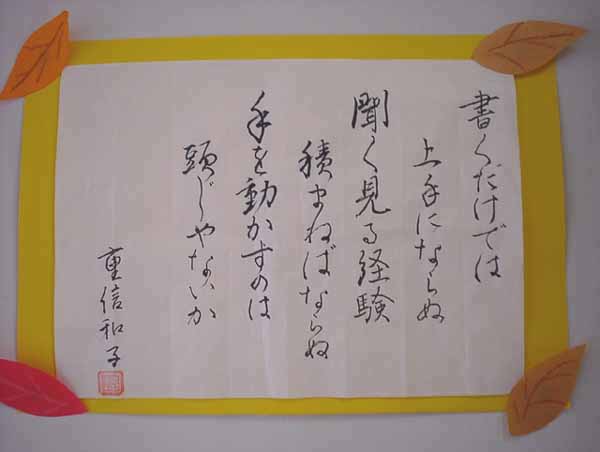 書くだけでは
上手にならぬ
聞く見る経験
積まねばならぬ
手を動かすのは
頭じゃないか
重信和子